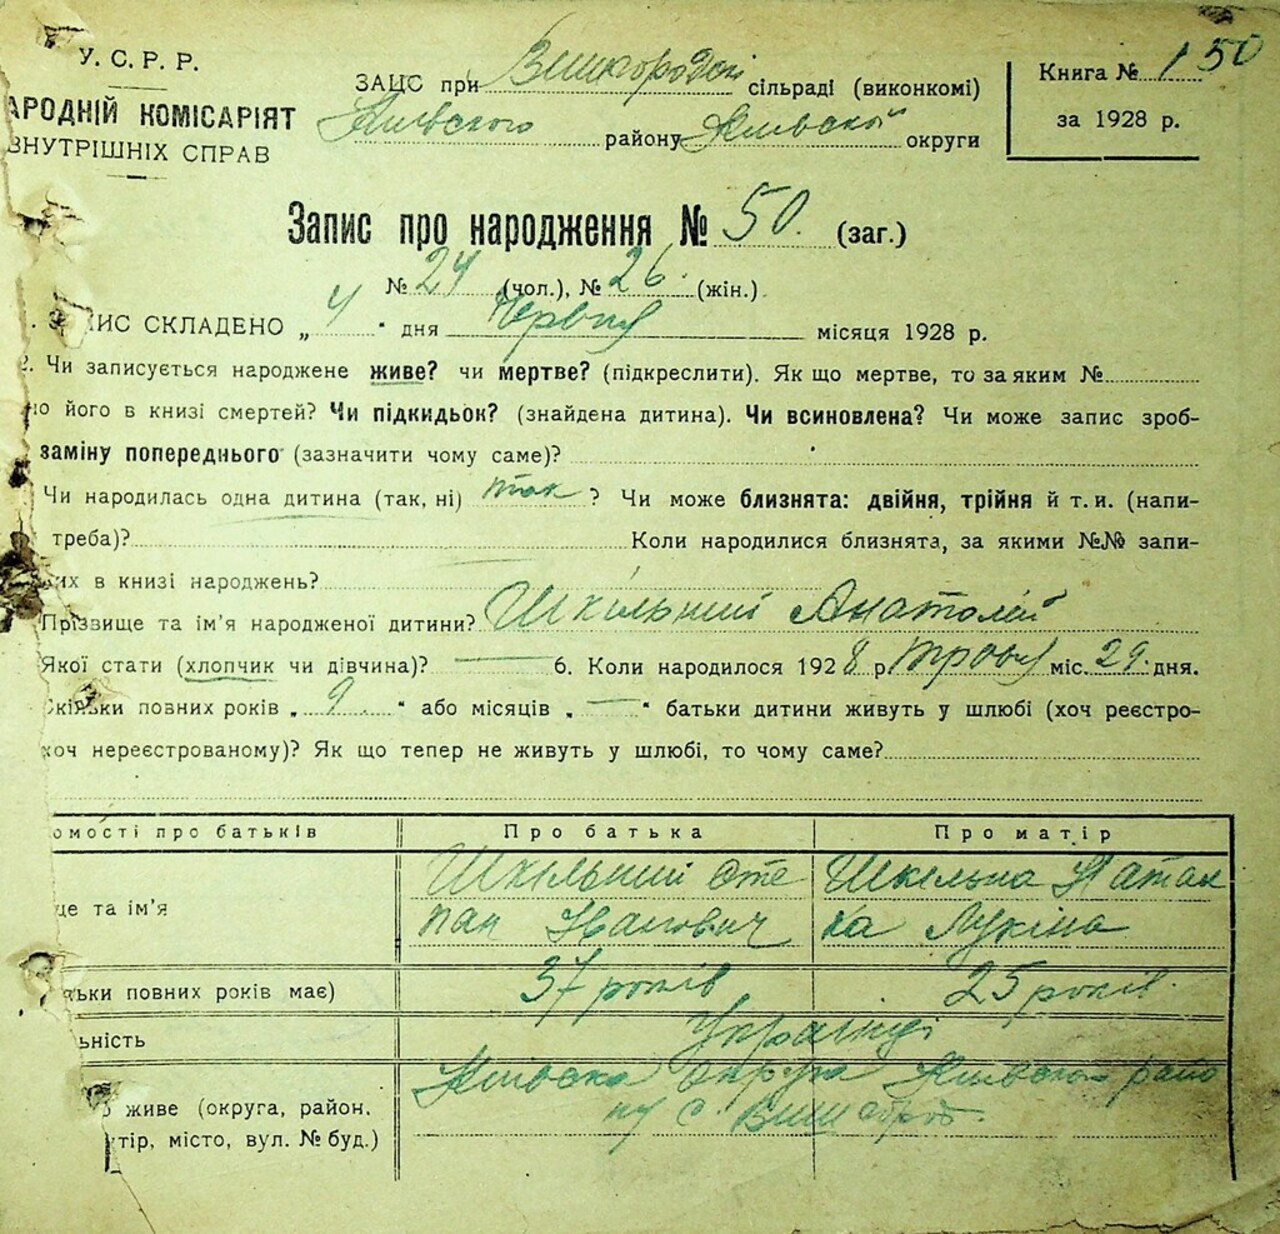 У. С. Р. Р.
АРОДНІЙ КОМІСАРІЯТ
ВНУТРІШНІХ СПРАВ
ЗАЦС при Вишгородскі сільраді (виконкомі)
Київского району Київскої округи
Книга № 1 50
за 1928 р.
Запис про народження № 50. (заг.)
№ 24 (чол.), № 26. (жін.)
ИС СКЛАДЕНО „ 4 " дня Червня місяця 1928 р.
2. Чи записується народжене живе? чи мертве? (підкреслити). Як що мертве, то за яким №
но його в книзі смертей? Чи підкидьок? (знайдена дитина). Чи всиновлена? Чи може запис зроб-
заміну попереднього (зазначити чому саме)?
Чи народилась одна дитина (так, ні) так ? Чи може близнята: двійня, трійня й т. и. (напи-
треба)? Коли народилися близнята, за якими №№ запи-
их в книзі народжень?
Прізвище та ім'я народженої дитини? Шкільний Анатолій
Якої стати (хлопчик чи дівчина)? — 6. Коли народилося 1928 р. травня міс. 29. дня.
Скільки повних років „ 9 " або місяців „ — " батьки дитини живуть у шлюбі (хоч реєстро-
хоч нереєстрованому)? Як що тепер не живуть у шлюбі, то чому саме?
омості про батьків Про батька Про матір
ще та ім'я Шкільний Сте Шкільна Натал
пан Іванович ка Лукіна
ьки повних років має) 37 років 25 років.
ьність Українці
Київска округа Київского райо
живе (округа, район. ну с. Вишгород.
тір, місто, вул. № буд.)